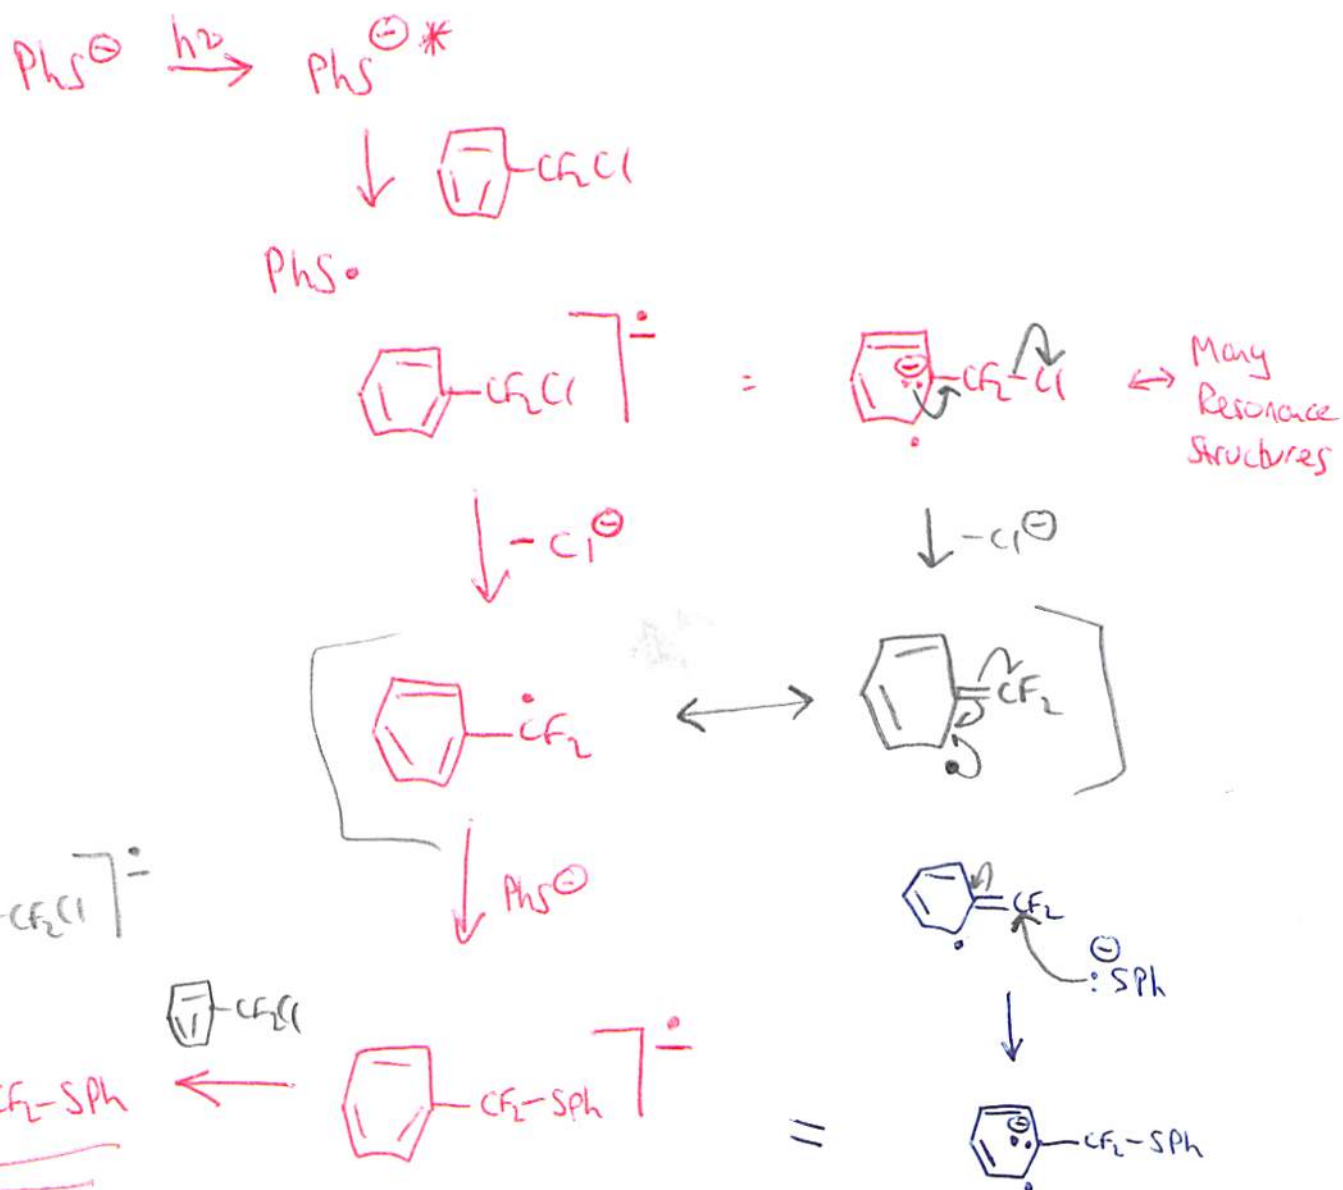 PhS⊖ hν PhS⊖*
CF₂Cl
PhS•
CF₂Cl •− = ⊖ •• CF₂-Cl ↔ Many
Resonance
Structures
- Cl⊖ -Cl⊖
•
CF₂ ↔ =CF₂
PhS⊖
-CF₂Cl •−
=CF₂
⊖
:SPh
-CF₂Cl
CF₂-SPh ← CF₂-SPh •− = ⊖ •• CF₂-SPh